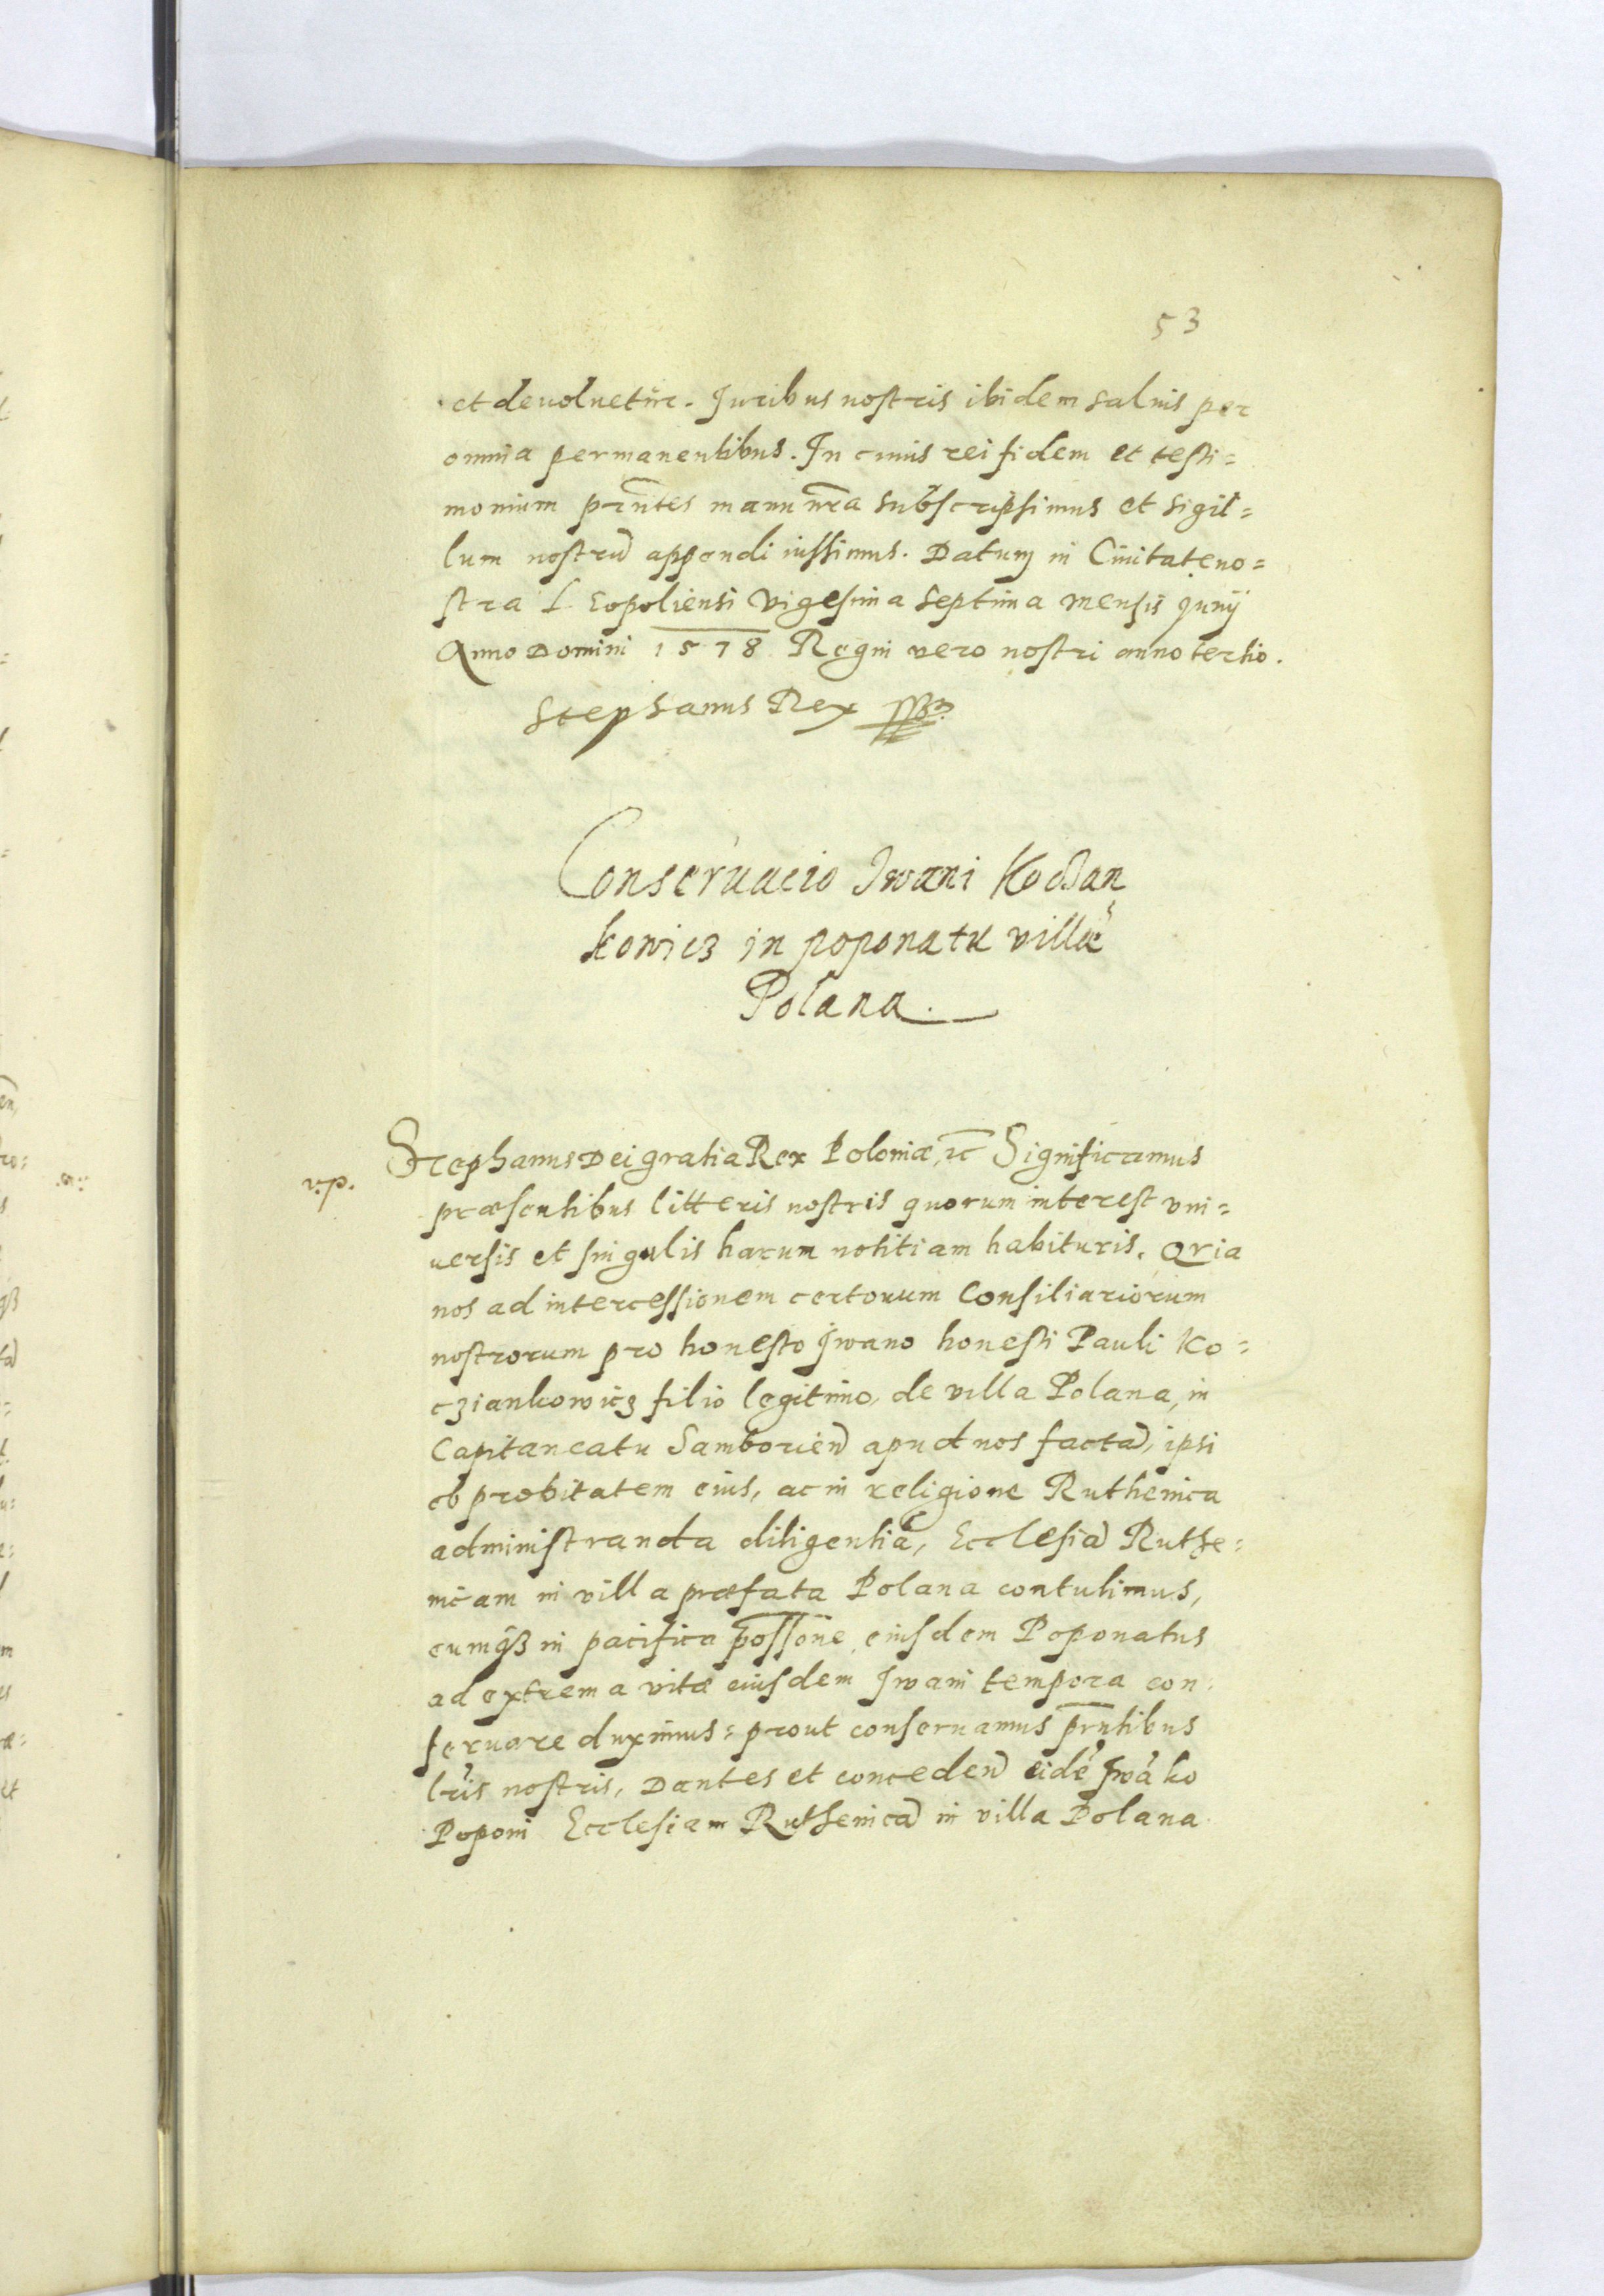 53
et deuoluetur. Juribus nostris ibidem saluis per
omnia permanentibus. In cuius rei fidem et testi=
monium prntes manu nra subscripsimus et sigil=
lum nostrū appendi iussimus. Datum in Ciuitate no=
stra Leopoliensi vigesima septima mensis Junij
Anno Domini 1578 Regni vero nostri anno tertio.
Stephanus Rex
Conseruacio Iwani Koczan
kowicz in poponatu villæ
Polana.
Stephanus Dei gratia Rex Poloniæ, etc Significamus
v.p.
præsentibus litteris nostris quorum interest vni=
uersis et singulis harum notitiam habituris. Quia
nos ad intercessionem certorum Consiliariorum
nostrorum pro honesto Iwano honesti Pauli Ko=
cziankowicz filio legitimo, de villa Polana, in
Capitaneatu Samborien apud nos factā, ipsi
ob probitatem eius, ac in religione Ruthenica
administranda diligentiā, Ecclesiā Ruthe=
nicam in villa præfata Polana contulimus,
eumqȝ in pacifica possone eiusdem Poponatus
ad extrema vitæ eiusdem Iwani tempora con
seruare duximus: prout conseruamus prntibus
lris nostris, Dantes et conceden eidē Iwāko
Poponi Ecclesiam Ruthenicā in villa Polana